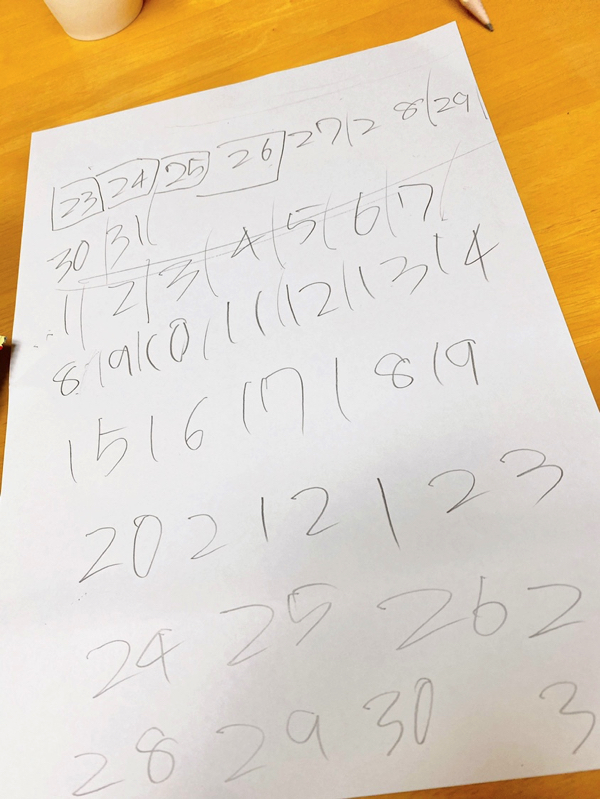 23 24 25 26 27 | 2 8 | 29 |
30 | 31 |
1 | 2 | 3 | 4 | 5 | 6 | 7 |
8 | 9 | 10 | 11 | 12 | 13 | 14
15 | 16 | 17 | 18 | 19
20 21 2 1 23
24 25 26 2
28 29 30 3